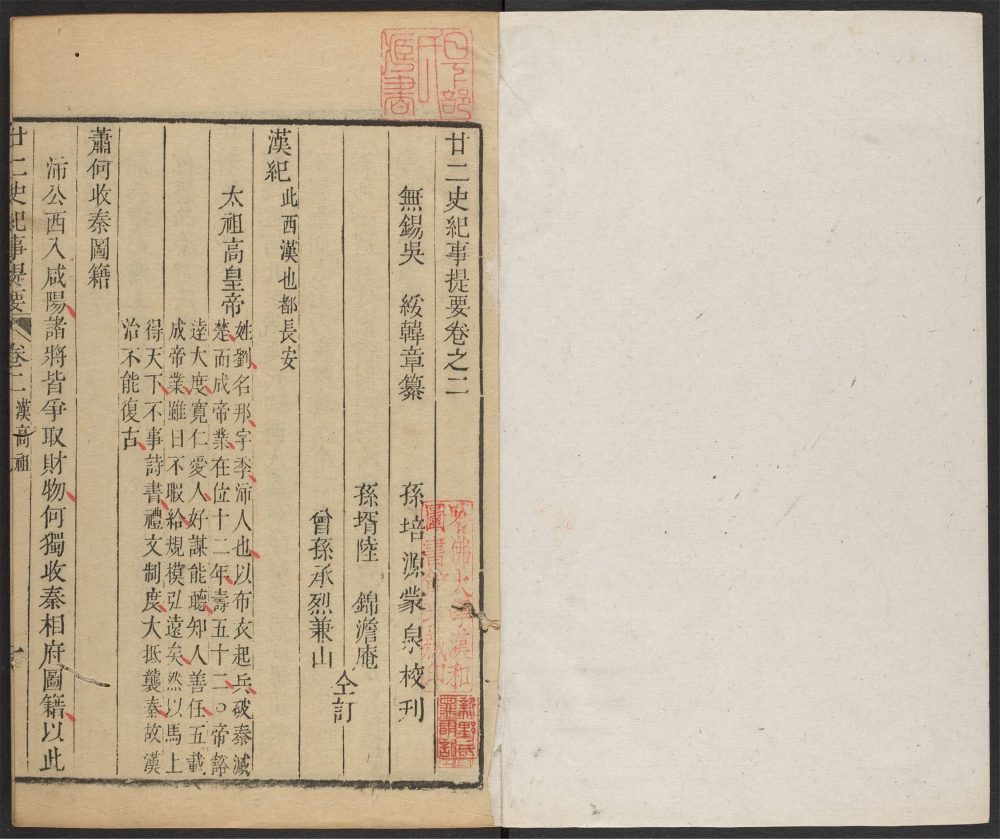 廿二史紀事提要卷之二
無錫吳　綏韓章纂　孫培源蒙泉校刊
孫壻陸　錦澹庵
曾孫承烈兼山
仝訂
漢紀此西漢也都長安
太祖高皇帝
姓劉名邦字季沛人也以布衣起兵破秦滅
楚而成帝業在位十二年壽五十二○帝豁
達大度寬仁愛人好謀能聽知人善任五載
成帝業雖日不暇給規模弘遠矣然以馬上
得天下不事詩書禮文制度大抵襲秦故漢
治不能復古
蕭何收秦圖籍
沛公西入咸陽諸將皆爭取財物何獨收秦相府圖籍以此
廿二史紀事提要　卷二　漢高祖
日下部
所
藏書
哈佛大學漢和
圖書館